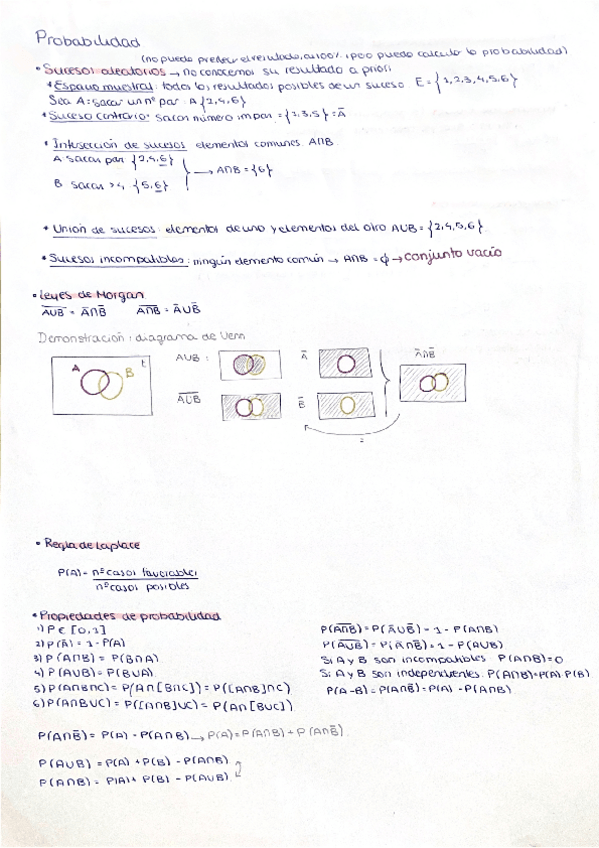 Probabilidad
(no puedo predecir el resultado, al 100% , pero puedo calcular la probabilidad)
• Sucesos aleatorios → no conocemos su resultado a priori
* Espacio muestral: todos los resultados posibles de un suceso E = {1,2,3,4,5,6}
Sea A = sacar un nº par A {2,4,6}
* Suceso contrario: sacar número impar = {1,3,5} = Ā
* Intersección de sucesos elementos comunes. A∩B.
A sacar par {2,4,6}
→ A∩B = {6}
B sacar >4 {5,6}
* Unión de sucesos: elementos de uno y elementos del otro AUB = {2,4,5,6}
* Sucesos incompatibles: ningún elemento común → A∩B = ϕ → conjunto vacío
• Leyes de Morgan
A̅U̅B̅ = Ā∩B̅ A̅∩̅B̅ = ĀUB̅
Demostración: diagrama de Venn
A B E
AUB :
A̅U̅B̅
Ā
B̅
Ā∩B̅
=
• Regla de Laplace
P(A) = nº casos favorables
nº casos posibles
• Propiedades de probabilidad
1) P ∈ [0,1]
2) P(Ā) = 1 - P(A)
3) P(A∩B) = P(B∩A)
4) P(AUB) = P(BUA)
5) P(A∩B∩C) = P(A∩[B∩C]) = P([A∩B]∩C)
6) P(A∩BUC) = P([A∩B]UC) = P(A∩[BUC])
P(A∩B̅) = P(A) - P(A∩B) → P(A) = P(A∩B) + P(A∩B̅).
P(AUB) = P(A) + P(B) - P(A∩B)
P(A∩B) = P(A) + P(B) - P(AUB)
P(A̅∩̅B̅) = P(ĀUB̅) = 1 - P(A∩B)
P(A̅U̅B̅) = P(Ā∩B̅) = 1 - P(AUB)
Si A y B son incompatibles P(A∩B) = 0
Si A y B son independientes: P(A∩B) = P(A)·P(B)
P(A-B) = P(A∩B̅) = P(A) - P(A∩B)